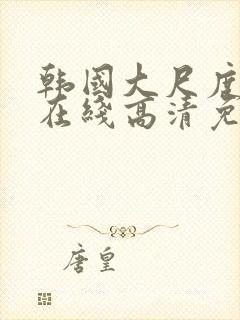 韩国大尺度
在线高清免
唐皇